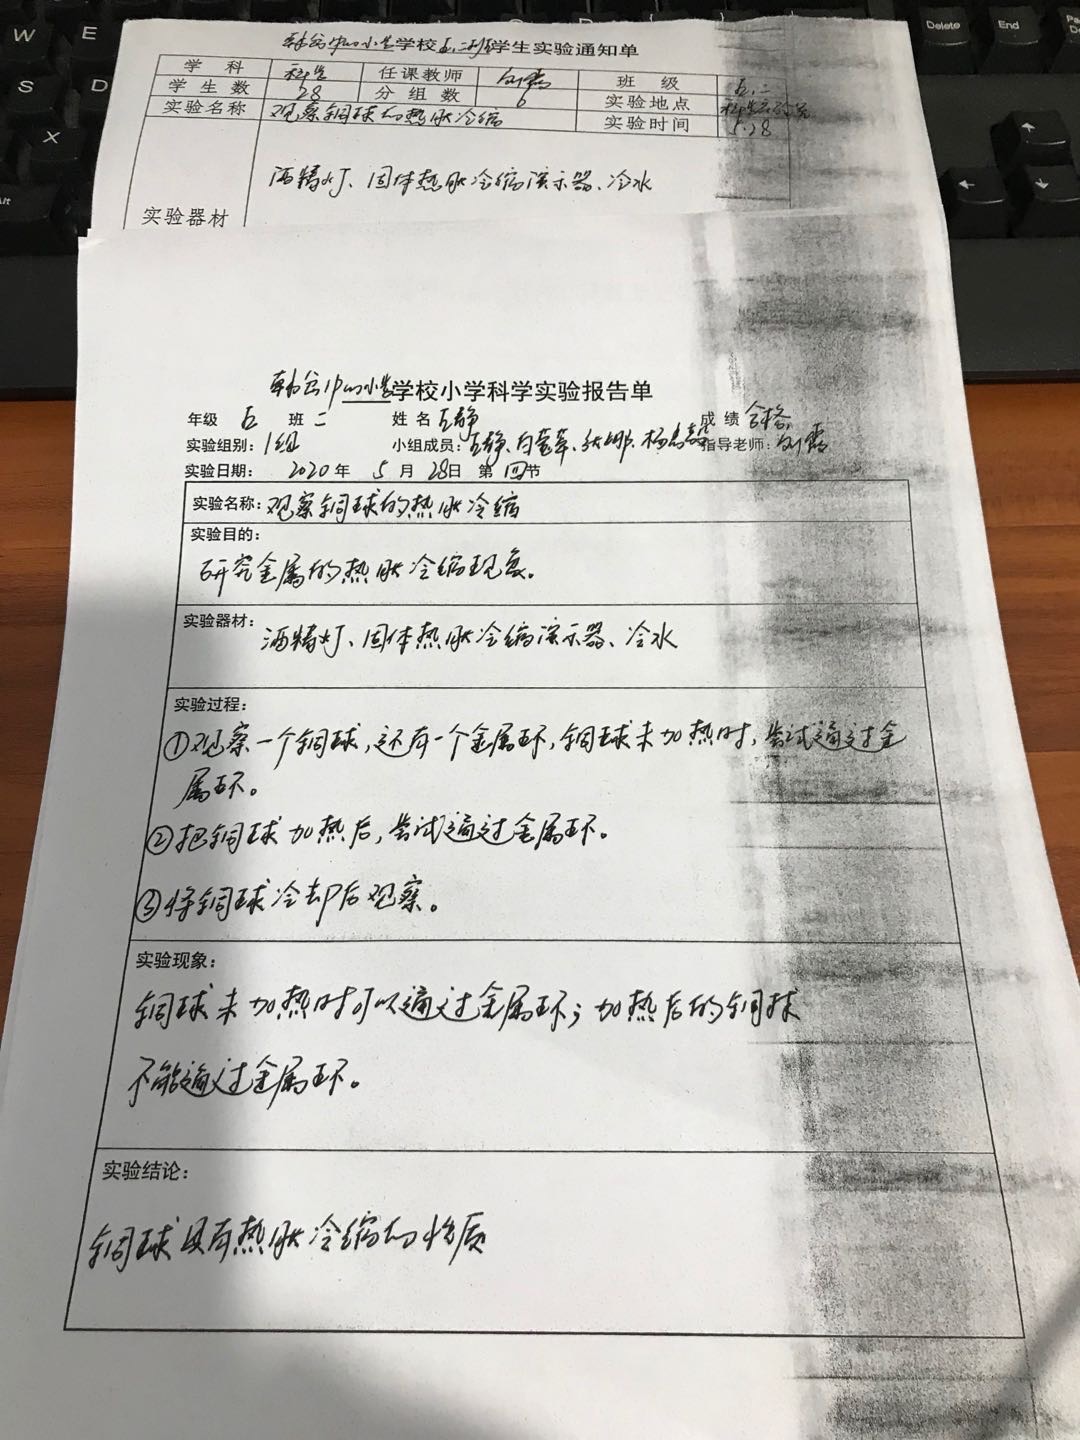 W E
S D
X
Alt
Delete End Pa
De
← ↓
学校五.二班学生实验通知单
学 科 科学 任课教师 班 级 五.二
学 生 数 28 分 组 数 6 实验地点 科学实验室
实验名称 观察铜球的热胀冷缩 实验时间 5.28
实验器材 酒精灯、固体热胀冷缩演示器、冷水
中心小学学校小学科学实验报告单
年级 五 班 二 姓 名 王静 成 绩 合格
实验组别:1组 小组成员:王静、 指导老师:
实验日期: 2020年 5月 28日 第 四节
实验名称:观察铜球的热胀冷缩
实验目的:
研究金属的热胀冷缩现象。
实验器材:
酒精灯、固体热胀冷缩演示器、冷水
实验过程:
①观察一个铜球,还有一个金属环,铜球未加热时,尝试通过金
属环。
②把铜球加热后,尝试通过金属环。
③将铜球冷却后观察。
实验现象:
铜球未加热时可以通过金属环;加热后的铜球
不能通过金属环。
实验结论:
铜球具有热胀冷缩的性质